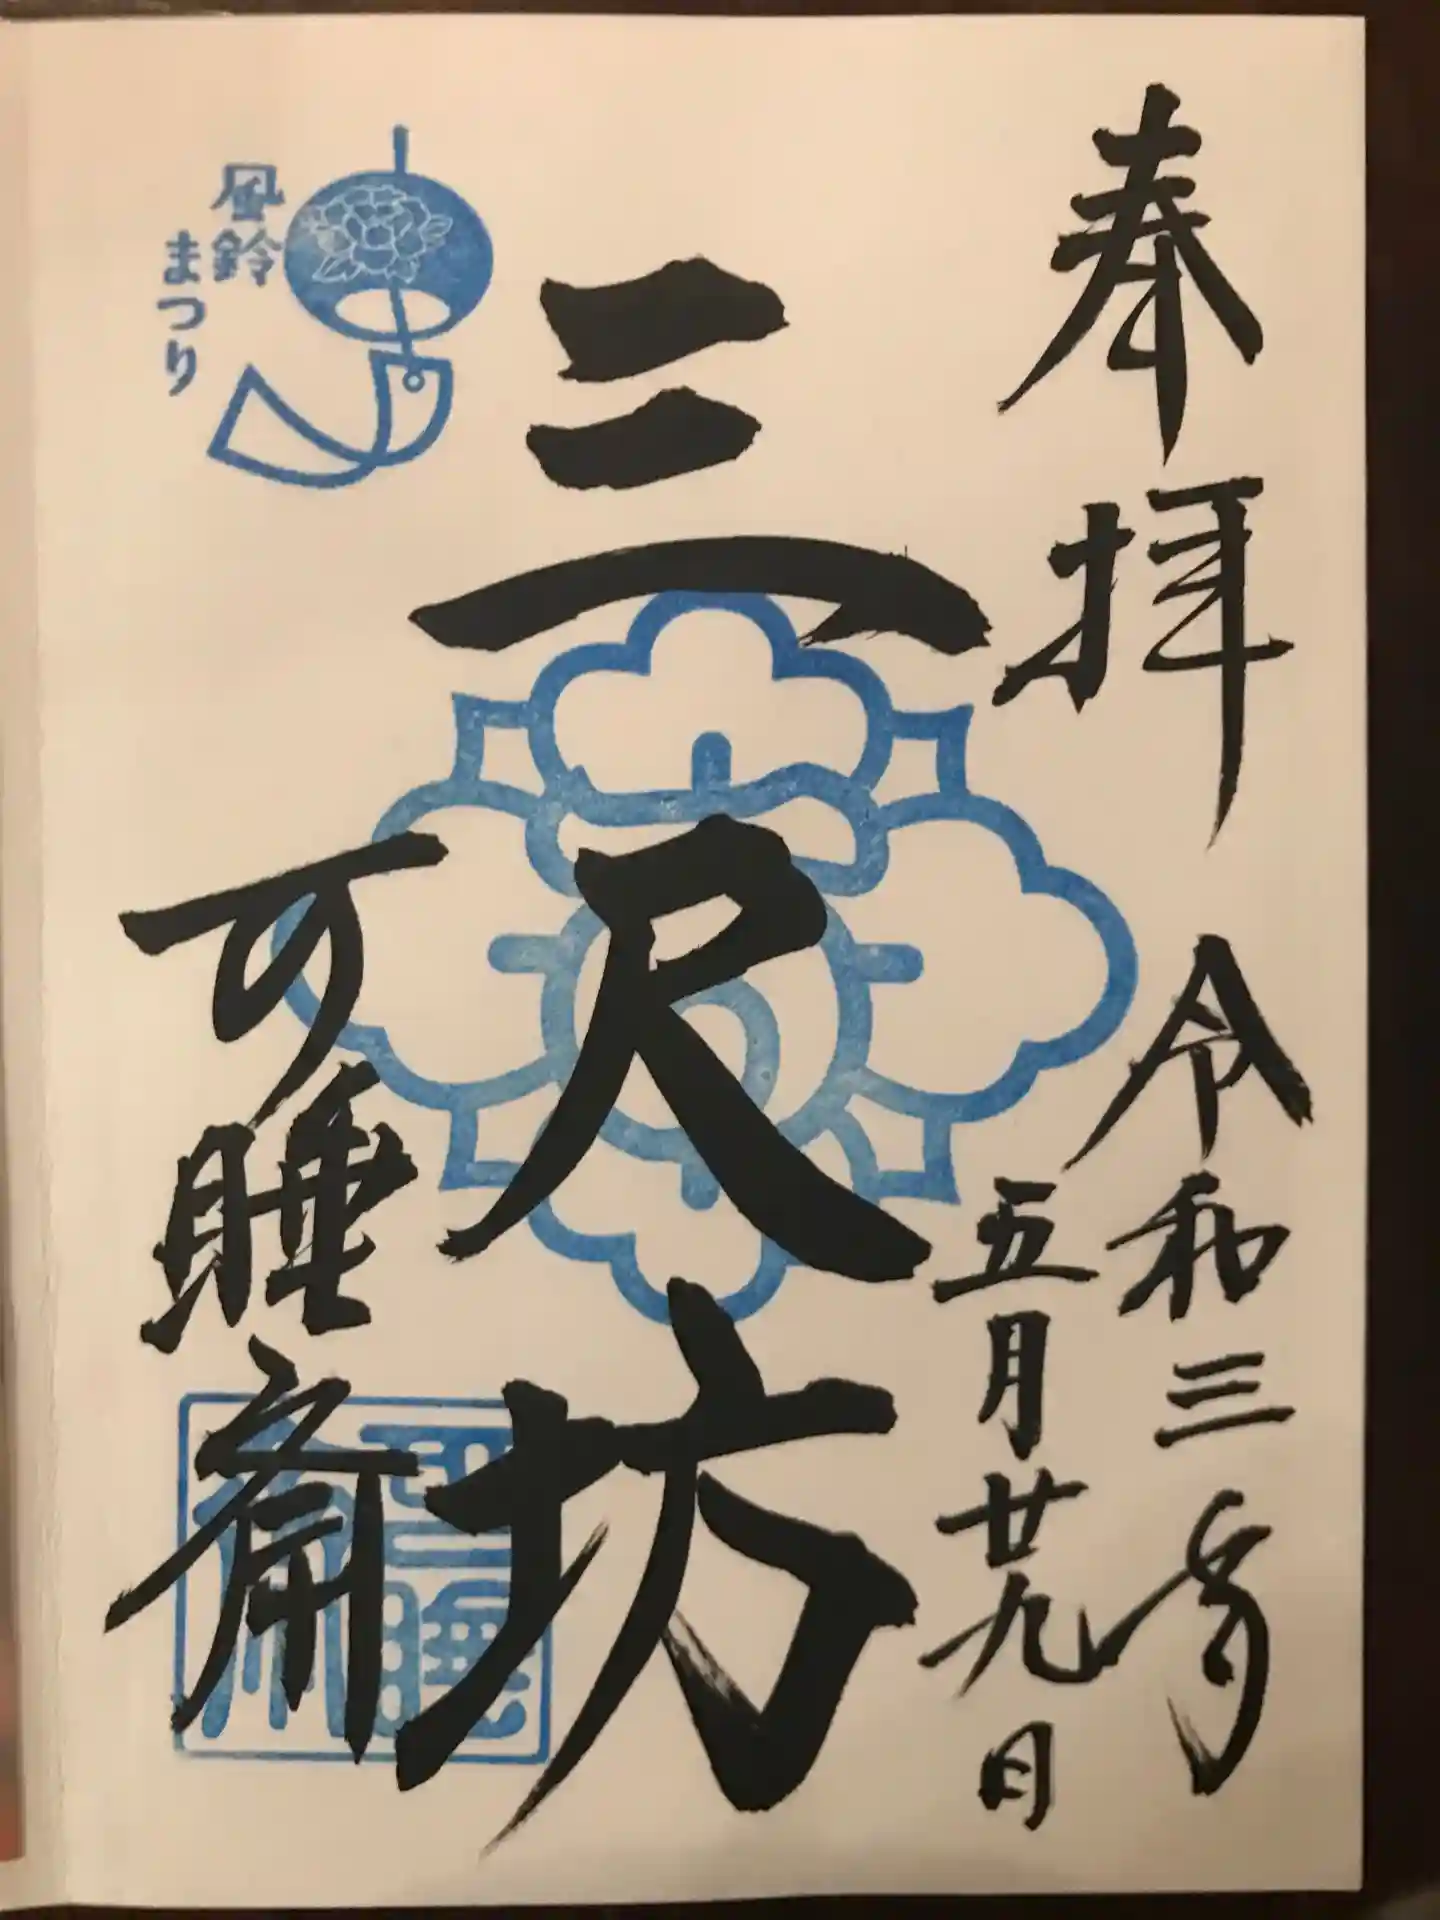 奉拝
令和三年
五月廿九日
三尺坊
可睡斎
風鈴
まつり
可睡
斎